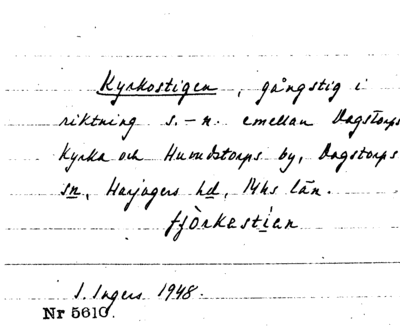 Kyrkostigen, gångstig i
riktning s.–n. emellan Dagstorps
Kyrka och Humdstorps by, Dagstorps
sn, Harjagers hd, Mhs län.
I. Ingers 1948.
Nr 5610.